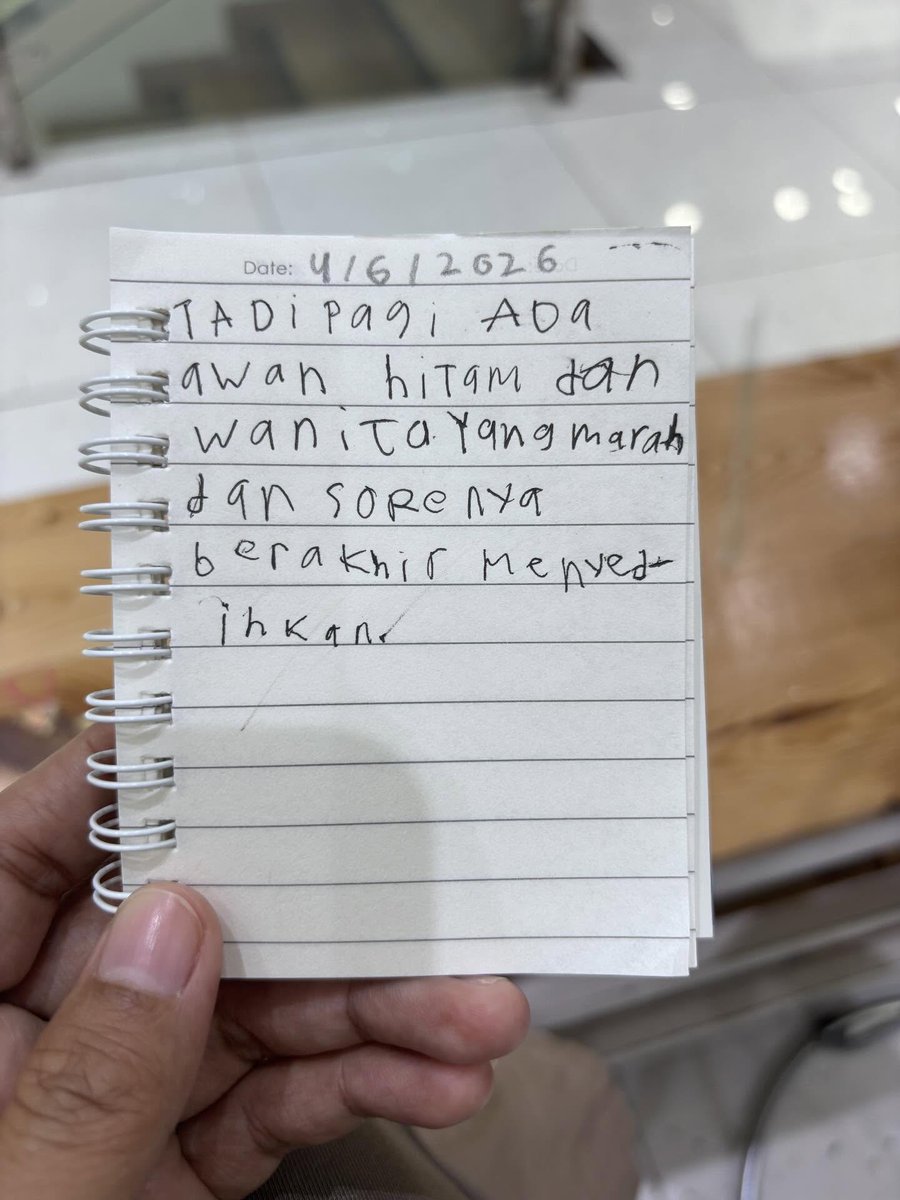 Date: 4/6/2026
TADi Pagi ADa
awan hiTam dan
waniTa Yang marah
dan soRenya
berakhir Menyed-
ihkan.